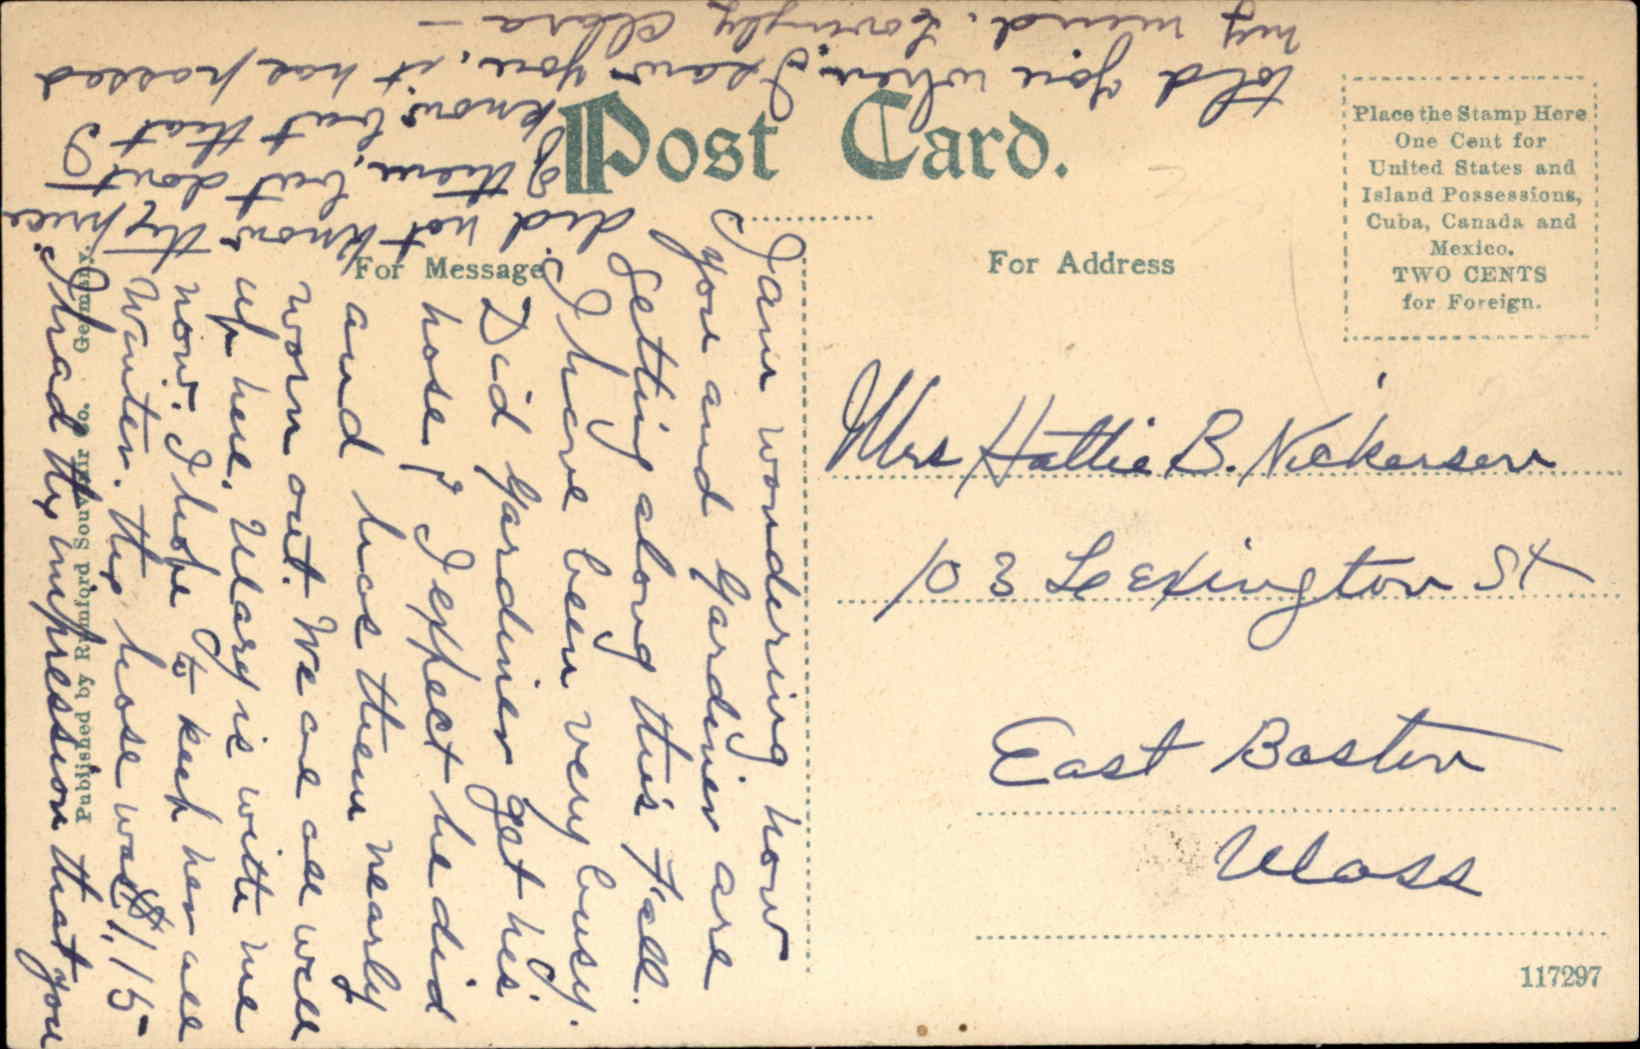 Post Card.
For Message
For Address
Place the Stamp Here
One Cent for
United States and
Island Possessions,
Cuba, Canada and
Mexico.
TWO CENTS
for Foreign.
Mrs Hattie B. Nickerson
103 Lexington St
East Boston
Mass
117297
Published by Rumford Souvenir Co. Germany.
I am wondering how
you and Gardiner are
getting along this Fall.
I have been very busy.
Did Gardiner get his
hose? I expect he did
and has them nearly
worn out. We are all well
up here. Mary is with me
now. I hope to keep her all
Winter. The hose was $1.15
I had the impression that you
did not know the price
of them, but don't
know but that I
told you when I saw you, it has passed
my mind. Lovingly Clara -